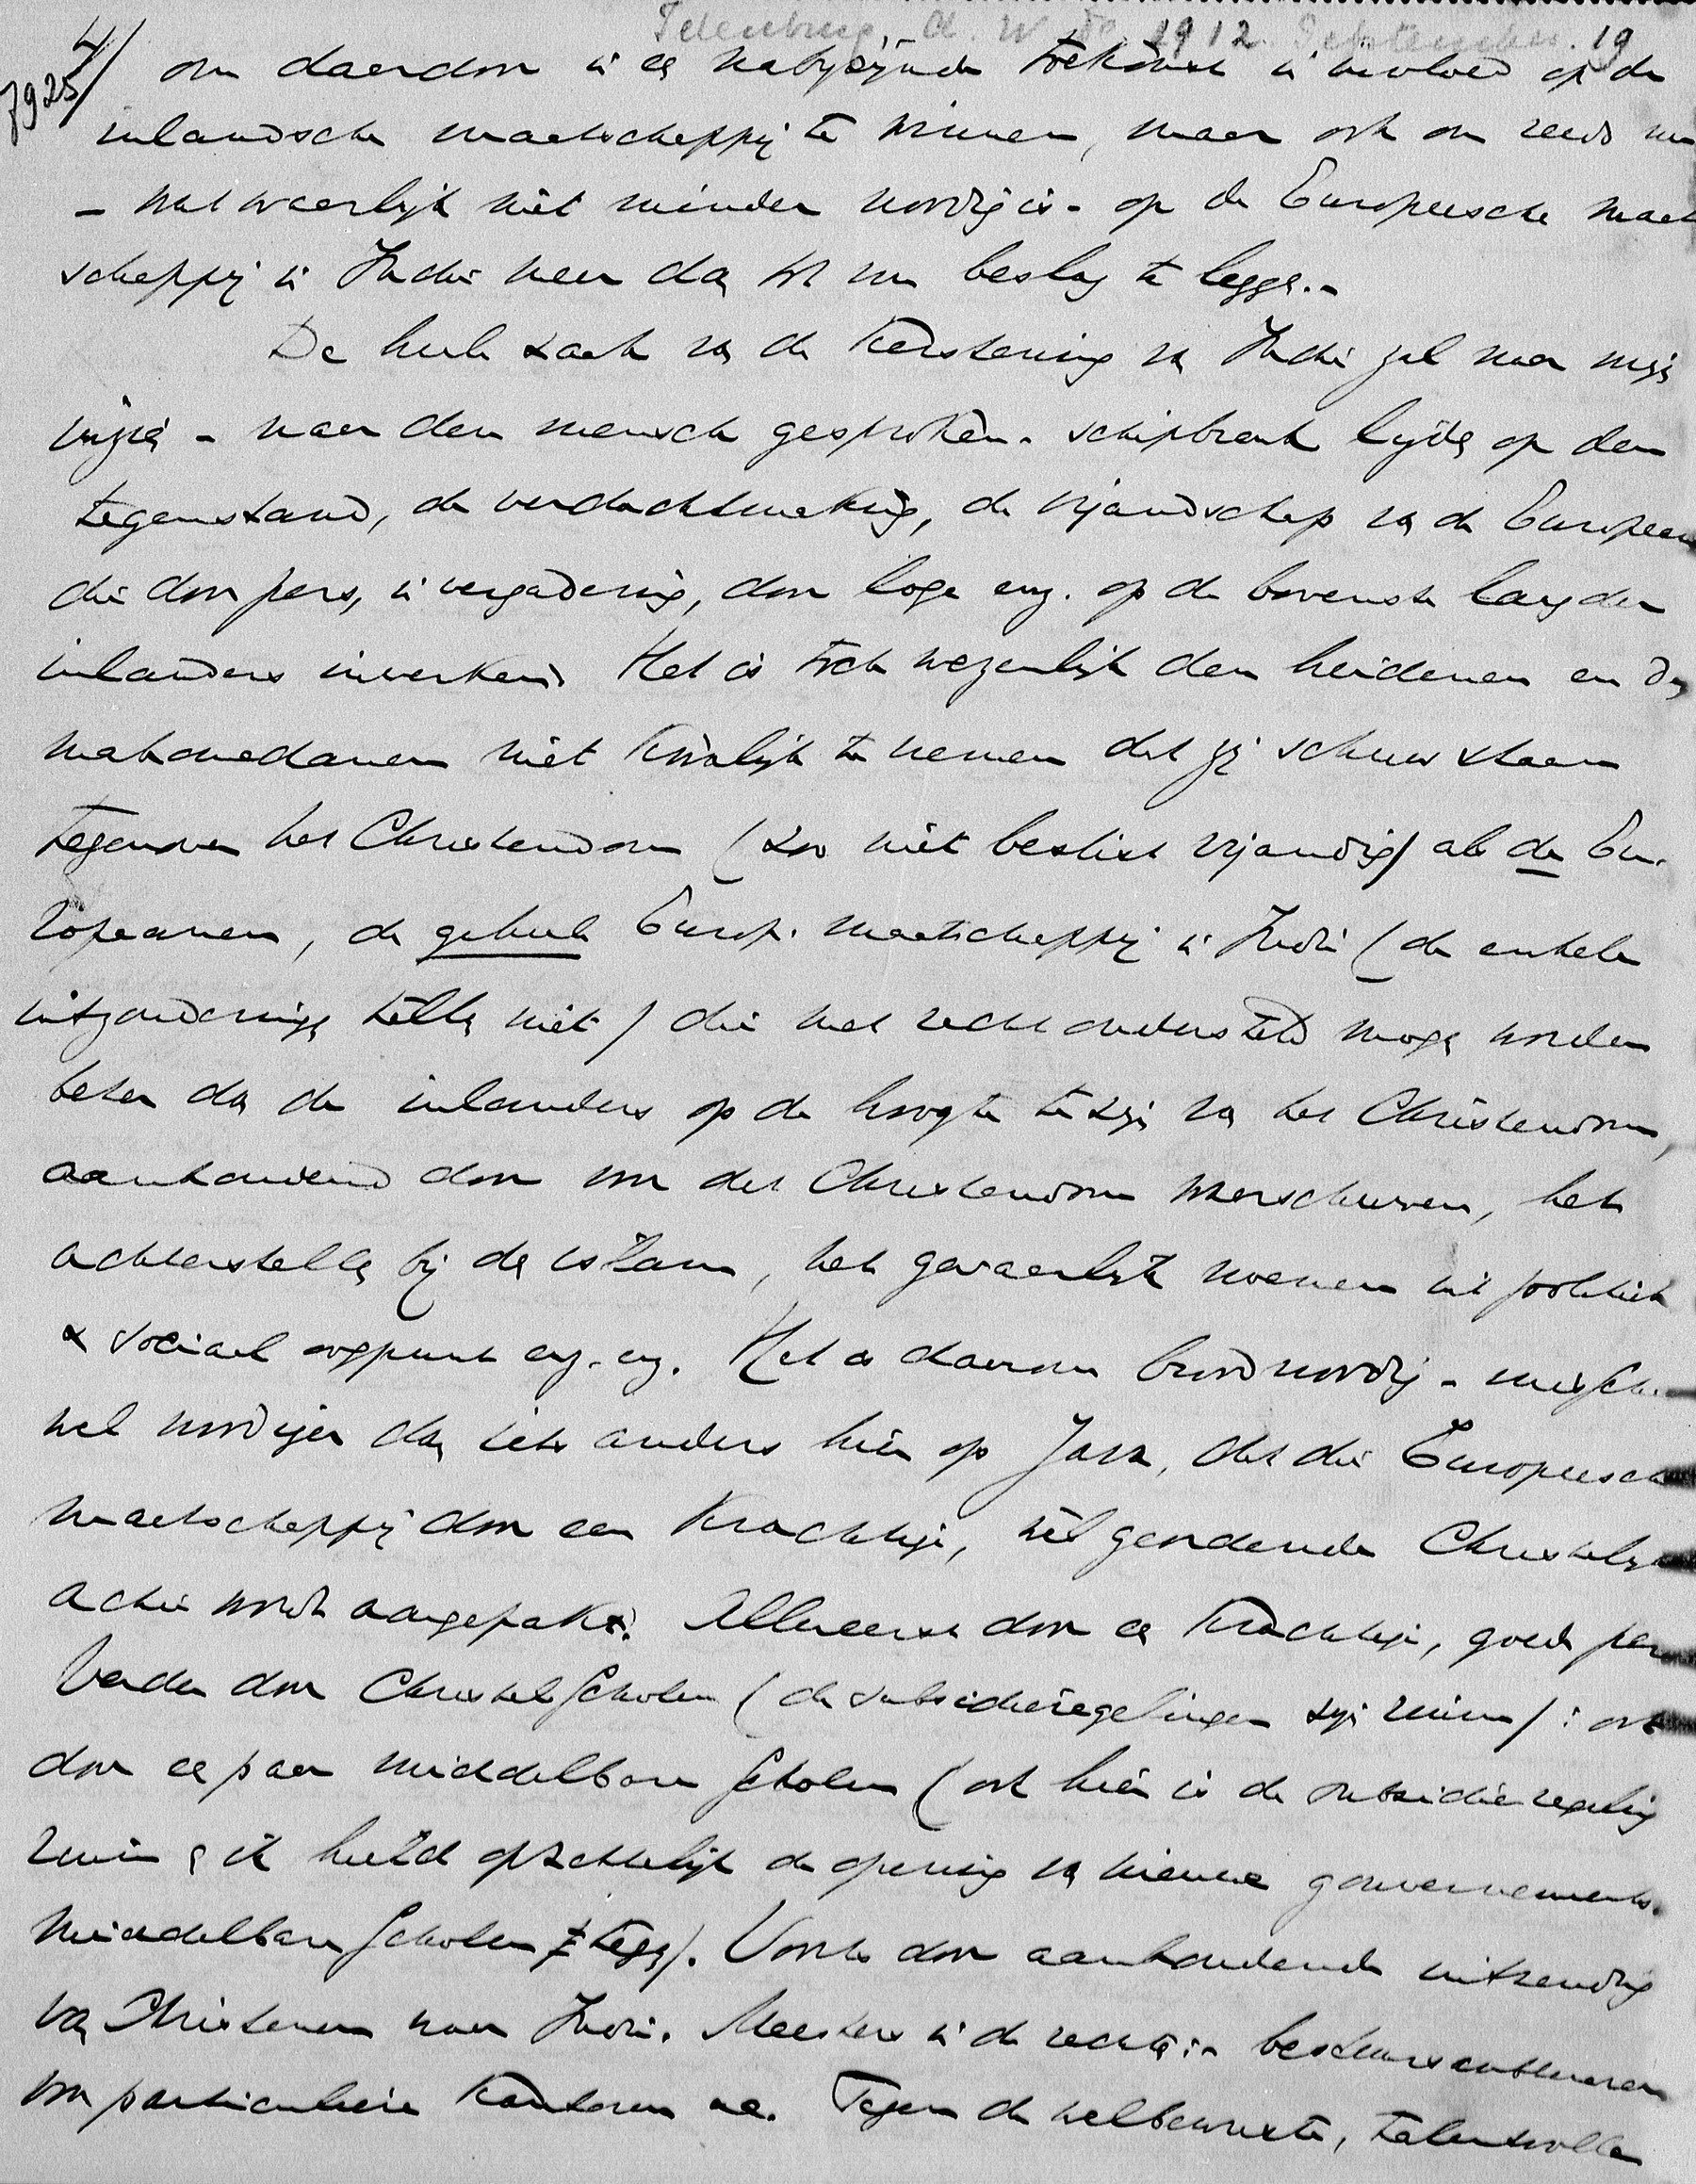 Idenburg, A. W. F. 1912 September. 19
4/
7925
om daardoor in de nabijzijnde toekomst invloed op de
inlandsche maatschappij te winnen, maar ook om reeds nu
- wat waarlijk niet minder noodig is - op de Europeesche maat
schappij in Indië meer dan tot nu beslag te leggen. -
De heele zaak van de kerstening van Indië zal naar mijn
inzien - naar den mensch gesproken - schipbreuk lijden op den
tegenstand, de verdachtmaking, de vijandschap van de Europeanen
die door pers, in vergadering, door loge enz. op de bovenste lagen der
inlanders inwerken. Het is toch wezenlijk den heidenen en den
mahomedanen niet kwalijk te nemen dat zij schuw staan
tegenover het Christendom (zoo niet beslist vijandig) als de Eu-
ropeanen, de geheele Europ. maatschappij in Indië (de enkele
uitzonderingen tellen niet) die met recht ondersteld mogen worden
beter dan de inlanders op de hoogte te zijn van het Christendom,
aanhoudend door voor dat Christendom waarschuwen, het
achterstellen bij den islam, het gevaarlijk noemen uit politiek
& sociaal oogpunt enz. enz. Het is daarom broodnoodig - misschien
wel noodiger dan iets anders hier op Java, dat die Europeesche
maatschappij door een krachtige, wel geordende Christelijke
actie wordt aangepakt. Allereerst door een krachtige, goede pers
Verder door Christel. scholen (de subsidieregelingen zijn ruim): ook
door een paar middelbare scholen (ook hier is de subsidieregeling
ruim & ik hield opzettelijk de opening van nieuwe gouvernements-
middelbare scholen tegen). Voorts door aanhoudende uitzending
van Christenen naar Indië. Meesters in de rechten: bestuursambtenaren
voor particuliere kantoren. Tegen de welbewuste, talentvolle